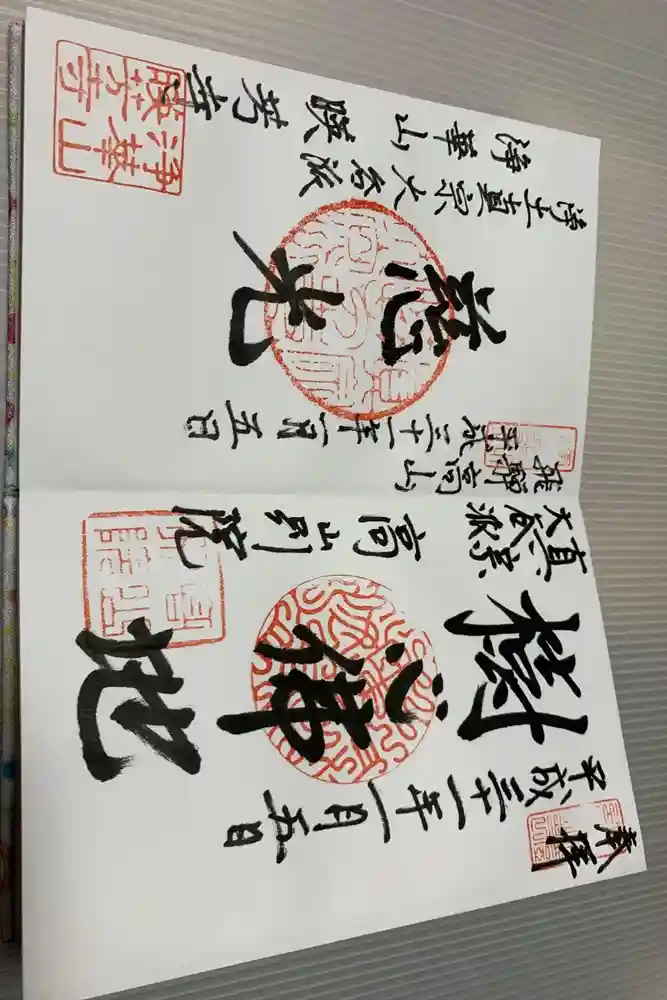 奉拝
平成三十一年一月五日
樹心佛地
真宗
大谷派
高山別院
飛騨高山
平成三十一年一月五日
慈光
浄土真宗大谷派
浄華山 映芳寺
浄華山
映芳寺